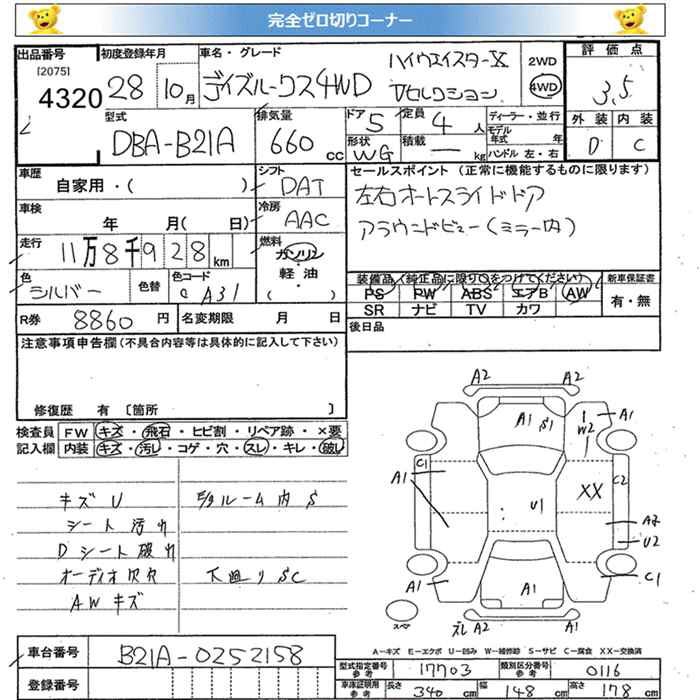 完全ゼロ切りコーナー
出品番号 初度登録年月 車名・グレード 評価点
[2075]
4320 28 10月 デイズルークス4WD ハイウェイスターX Vセレクション 2WD 4WD 3.5
型式 排気量 ドア 定員 ディーラー・並行 外装 内装
DBA-B21A 660 cc 5 4人 モデル年式 年 D C
形状 WG 積載 ー kg ハンドル 左・右
車歴 シフト セールスポイント (正常に機能するものに限ります)
自家用・( ) DAT 左右オートスライドドア
車検 冷房 アラウンドビュー(ミラー内)
年 月( 日) AAC
走行 燃料
11万8千928km ガソリン
軽油
( )
色 色替 色コード 装備品(純正品に限り○をつけてください) 新車保証書
シルバー C A31 PS PW ABS エアB AW 有・無
SR ナビ TV カワ
R券 8860円 名変期限 月 日 後日品
注意事項申告欄(不具合内容等は具体的に記入して下さい)
修復歴 有 [箇所 ]
検査員 FW キズ・飛石・ヒビ割・リペア跡・×要
記入欄 内装 キズ・汚レ・コゲ・穴・スレ・キレ・破レ
キズU
シート汚れ
Dシート破れ
オーディオ欠品
AWキズ
ルーム内 S
下廻りSC
A2 A2
A1 S1 W2 A1
A1 C1 XX C2
U1
A2
U2
A1 A1 C1
スペア ズレ A2 A1
A-キズ E-エクボ U-凹み W-補修跡 S-サビ C-腐食 XX-交換済
車台番号 B21A-0252158
登録番号
型式指定番号 参考 17703 類別区分番号 参考 0116
車庫証明用 参考 長さ 340cm 幅 148cm 高さ 178cm